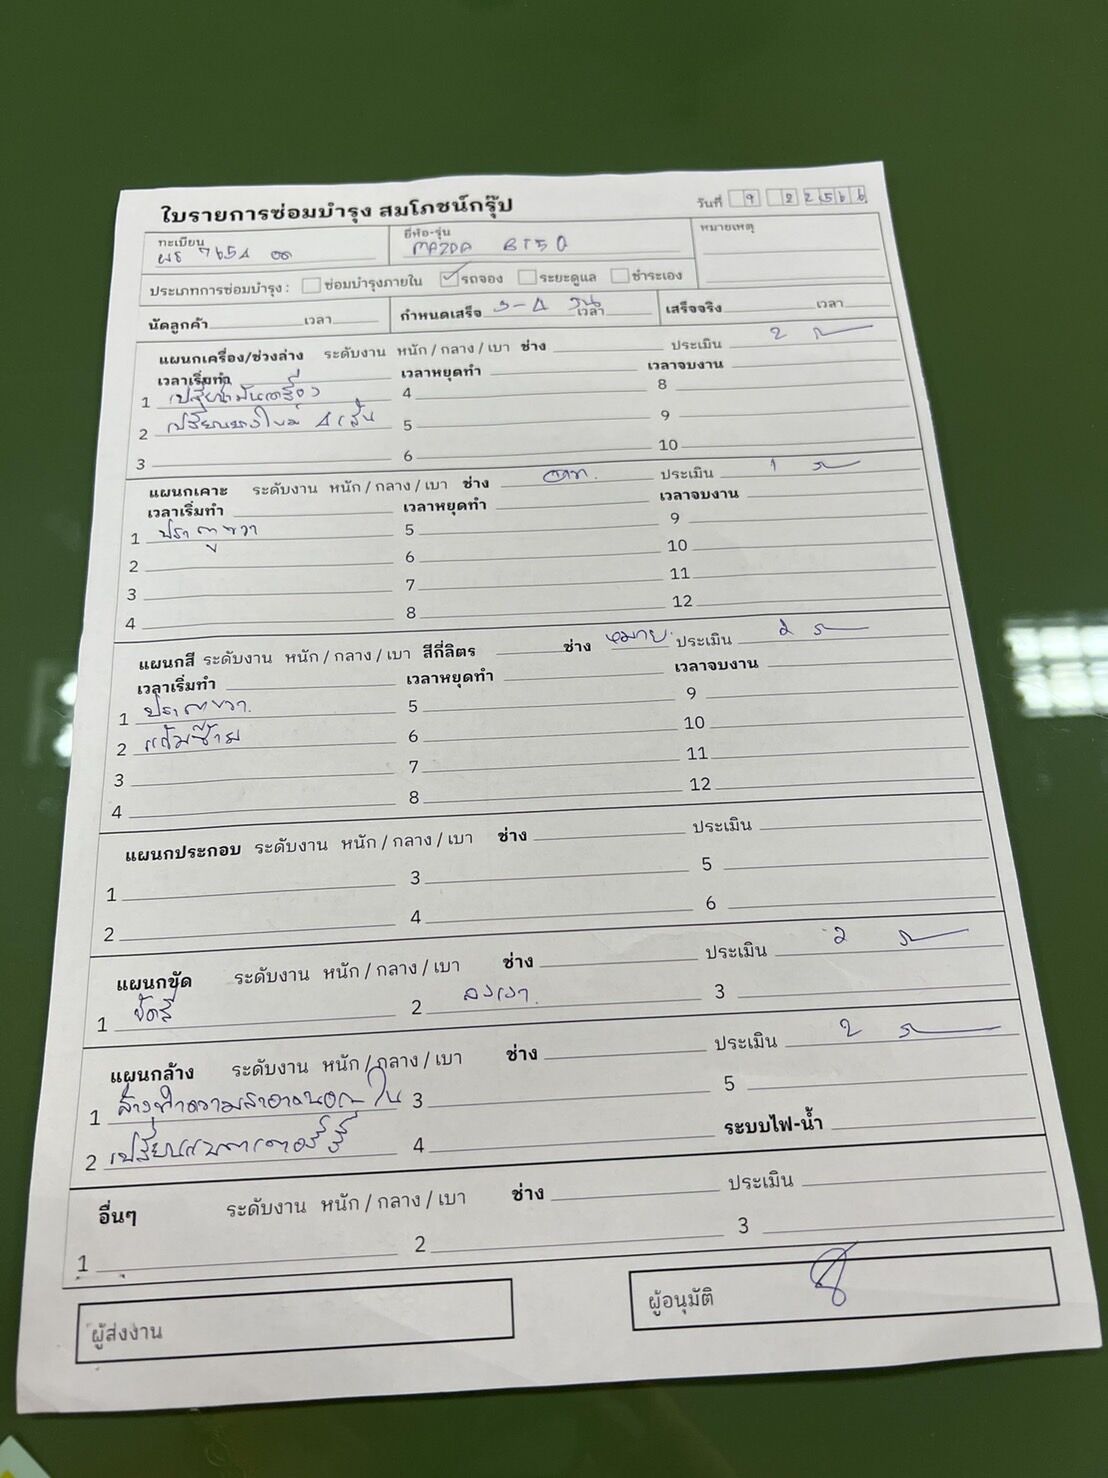 ใบรายการซ่อมบำรุง สมโภชน์กรุ๊ป
วันที่ 9 2 2566
ทะเบียน
ผร 7654
ยี่ห้อ-รุ่น
MAZDA BT50
หมายเหตุ
ประเภทการซ่อมบำรุง : ซ่อมบำรุงภายใน ✓ รถจอง ระยะดูแล ชำระเอง
นัดลูกค้า เวลา กำหนดเสร็จ 3-4 วัน เวลา เสร็จจริง เวลา
แผนกเครื่อง/ช่วงล่าง ระดับงาน หนัก / กลาง / เบา ช่าง ประเมิน 2
เวลาเริ่มทำ เวลาหยุดทำ เวลาจบงาน
1 เปลี่ยนน้ำมันเครื่อง 4 8
2 เปลี่ยนยางใหม่ 4 เส้น 5 9
3 6 10
แผนกเคาะ ระดับงาน หนัก / กลาง / เบา ช่าง ประเมิน 1
เวลาเริ่มทำ เวลาหยุดทำ เวลาจบงาน
1 ประตูขวา 5 9
2 6 10
3 7 11
4 8 12
แผนกสี ระดับงาน หนัก / กลาง / เบา สีกี่ลิตร ช่าง หมาย ประเมิน 2
เวลาเริ่มทำ เวลาหยุดทำ เวลาจบงาน
1 ประตูขวา 5 9
2 แก้มซ้าย 6 10
3 7 11
4 8 12
แผนกประกอบ ระดับงาน หนัก / กลาง / เบา ช่าง ประเมิน
1 3 5
2 4 6
แผนกขัด ระดับงาน หนัก / กลาง / เบา ช่าง ประเมิน 2
1 ขัดสี 2 ลงเงา 3
แผนกล้าง ระดับงาน หนัก / กลาง / เบา ช่าง ประเมิน 2
1 ล้างทำความสะอาดนอกใน 3 5
2 เปลี่ยนแบตเตอรี่ 4 ระบบไฟ-น้ำ
อื่นๆ ระดับงาน หนัก / กลาง / เบา ช่าง ประเมิน
1 2 3
ผู้ส่งงาน
ผู้อนุมัติ